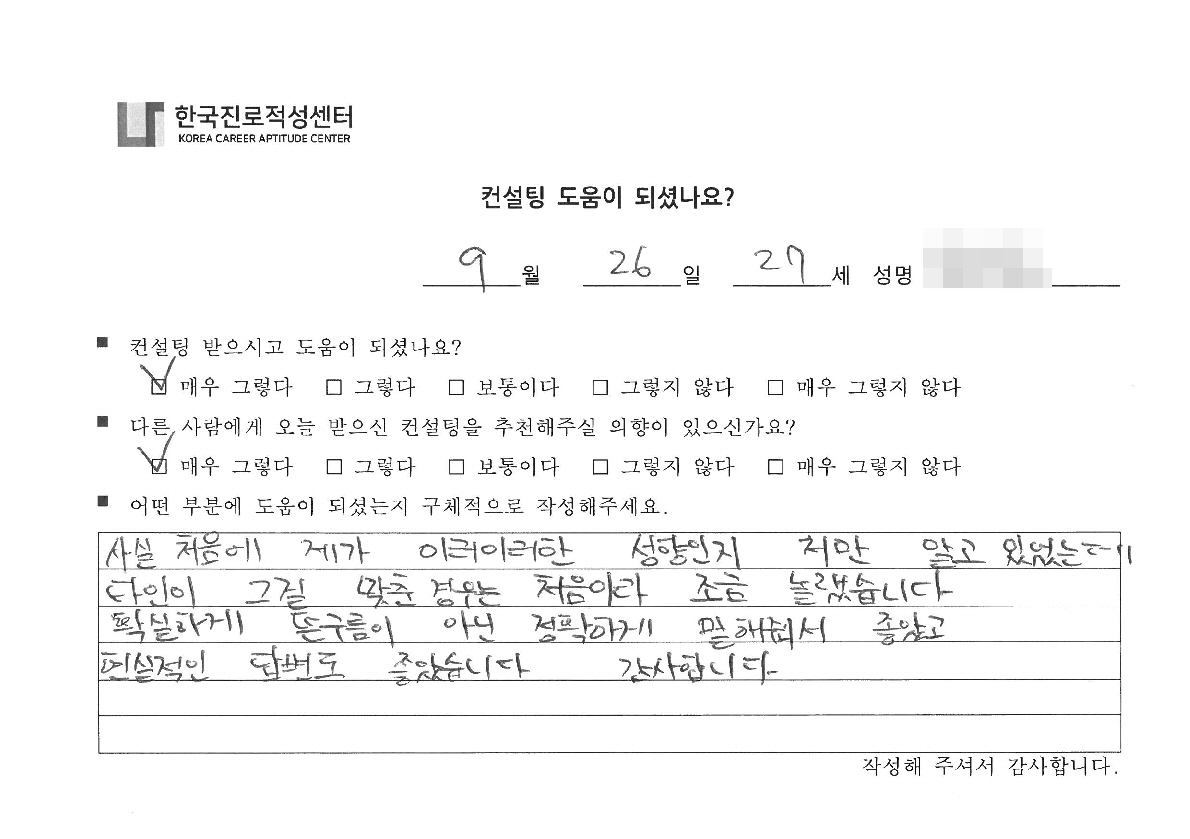 한국진로적성센터
KOREA CAREER APTITUDE CENTER
컨설팅 도움이 되셨나요?
9월 26일 27세 성명
■ 컨설팅 받으시고 도움이 되셨나요?
☑ 매우 그렇다 □ 그렇다 □ 보통이다 □ 그렇지 않다 □ 매우 그렇지 않다
■ 다른 사람에게 오늘 받으신 컨설팅을 추천해주실 의향이 있으신가요?
☑ 매우 그렇다 □ 그렇다 □ 보통이다 □ 그렇지 않다 □ 매우 그렇지 않다
■ 어떤 부분에 도움이 되셨는지 구체적으로 작성해주세요.
사실 처음에 제가 이러이러한 성향인지 저만 알고 있었는데
타인이 그걸 맞춘 경우는 처음이라 조금 놀랬습니다
확실하게 뜬구름이 아닌 정확하게 말해줘서 좋았고
현실적인 답변도 좋았습니다 감사합니다.
작성해 주셔서 감사합니다.